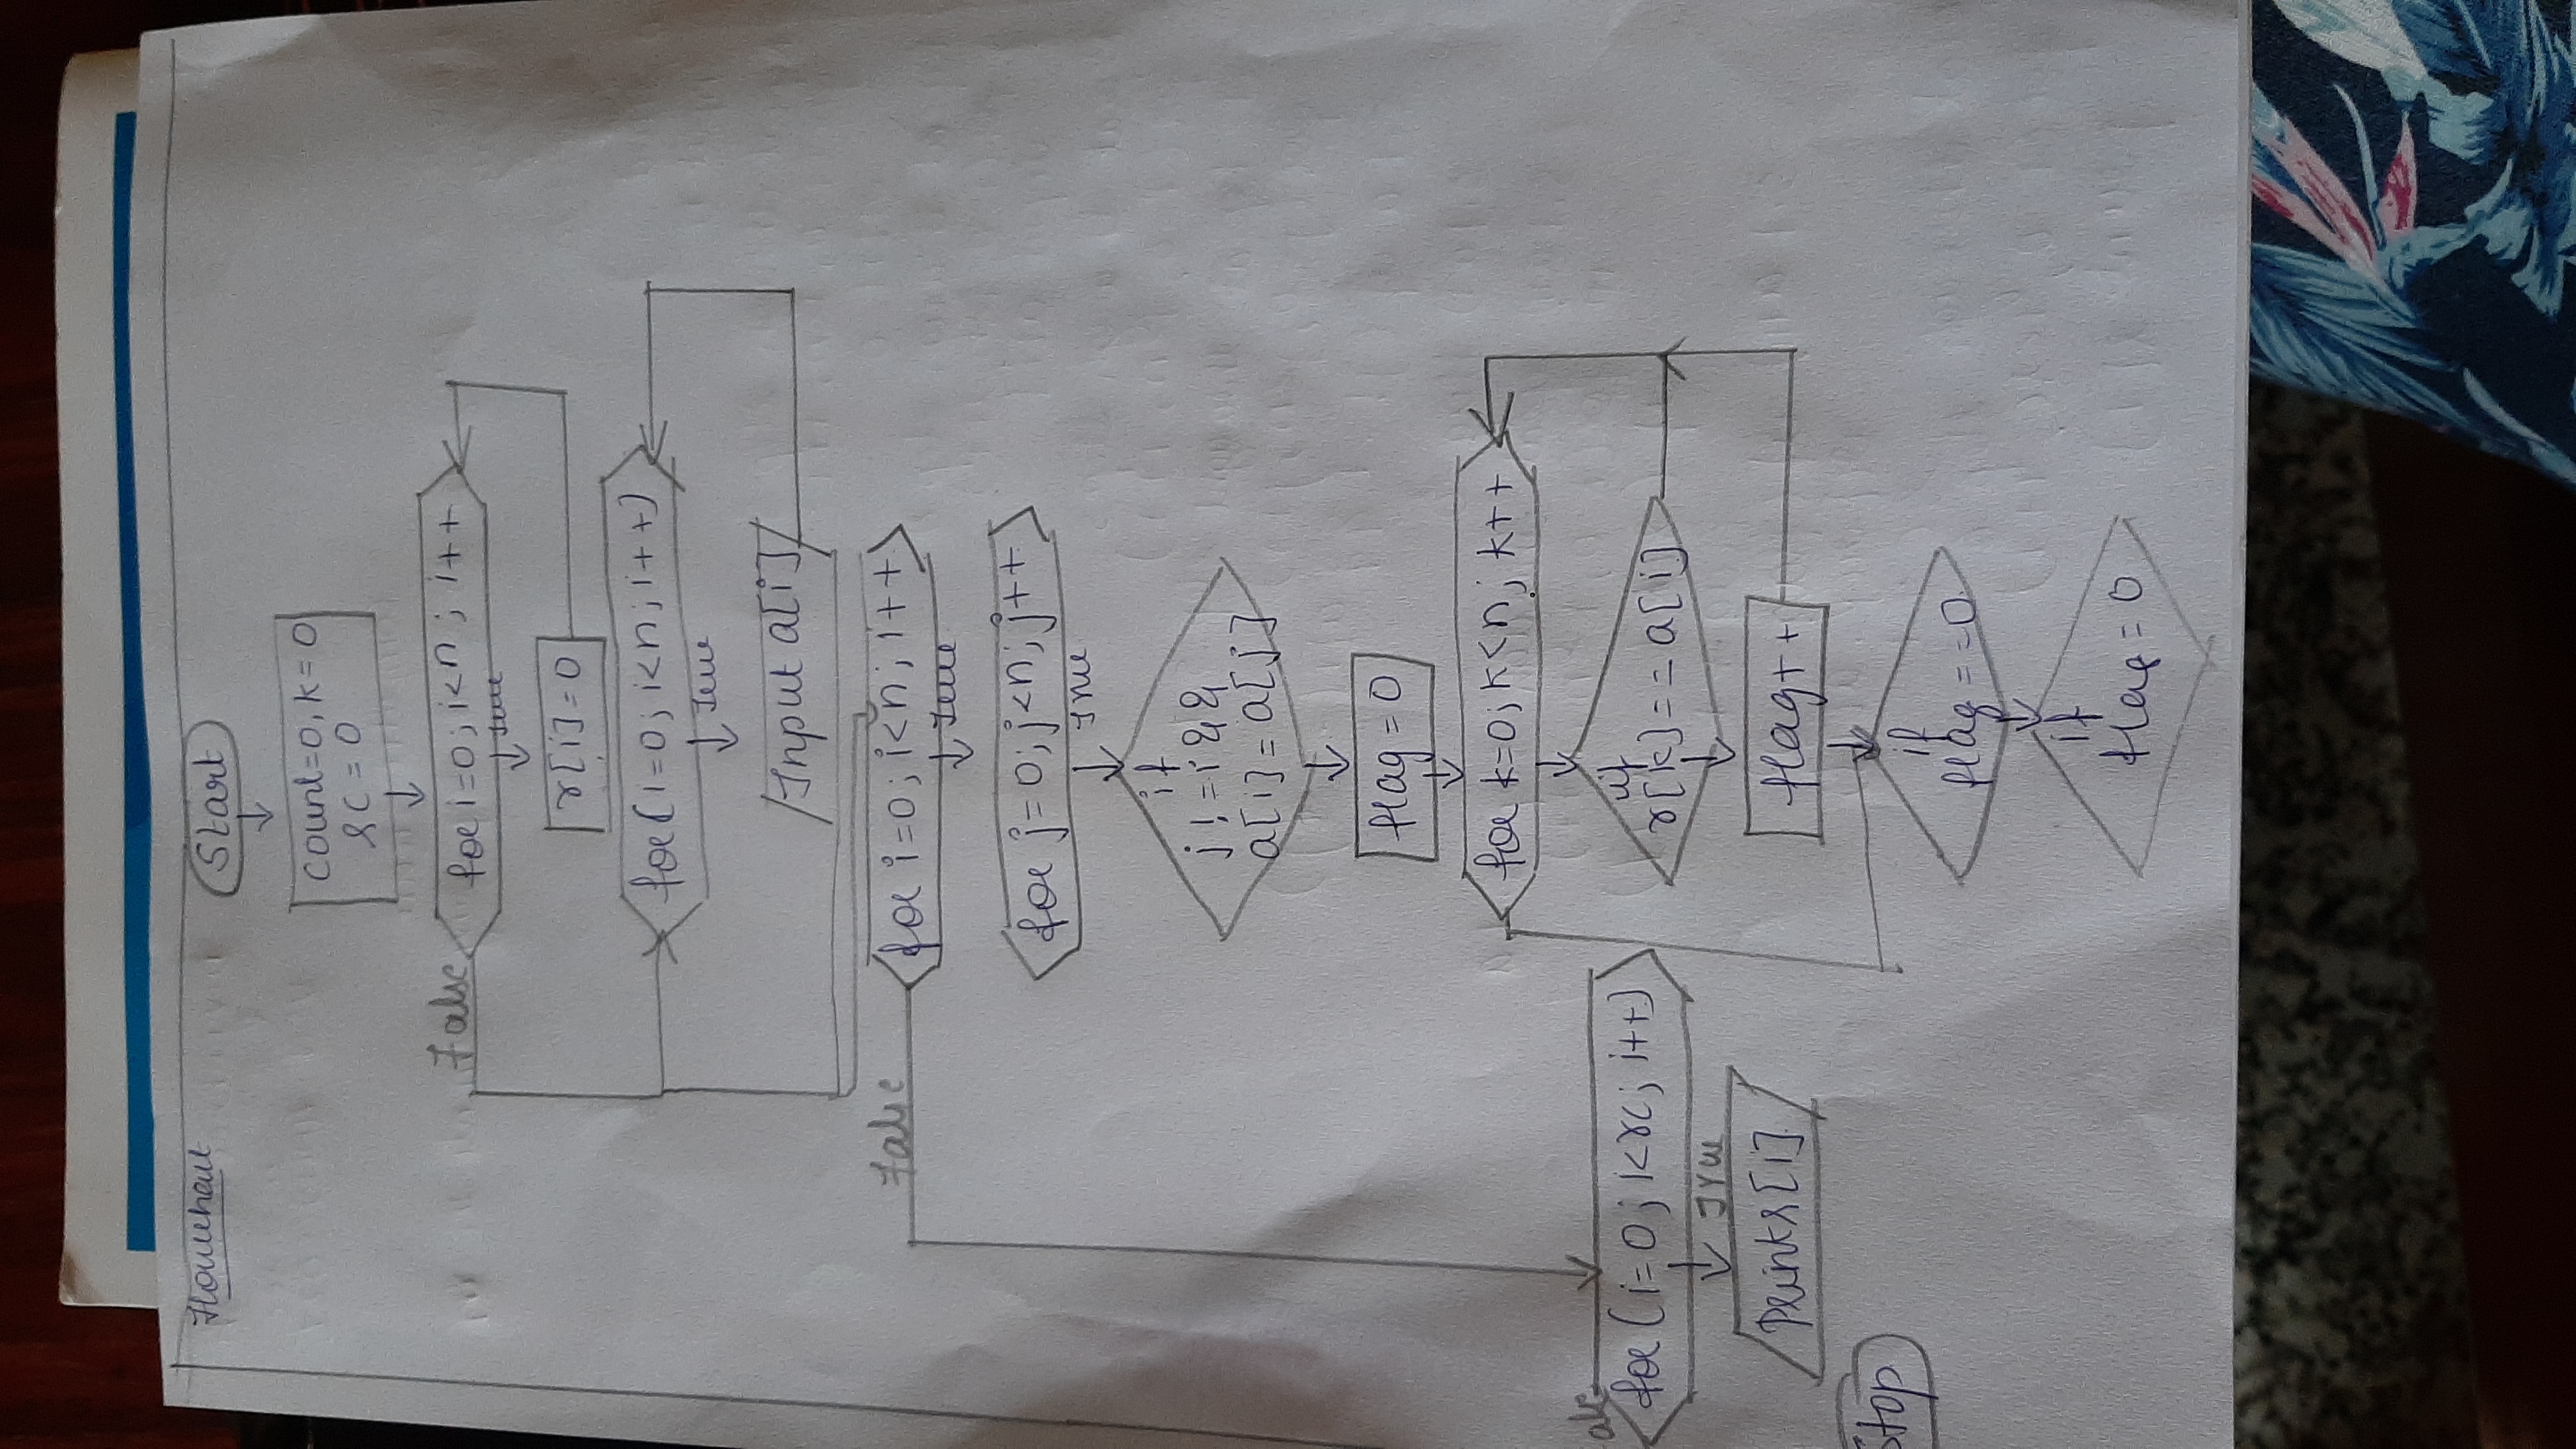 Flowchart
Start
count=0, k=0
rc=0
False
for i=0; i<n; i++
True
r[i]=0
for(i=0; i<n; i++)
True
Input a[i]
False
for i=0; i<n; i++
True
for j=0; j<n; j++
True
if
j!=i &&
a[i]=a[j]
flag=0
for k=0; k<n; k++
if
r[k]==a[i]
flag++
if
flag==0
if
flag=0
alse
for(i=0; i<rc; i++)
True
Print r[i]
Stop